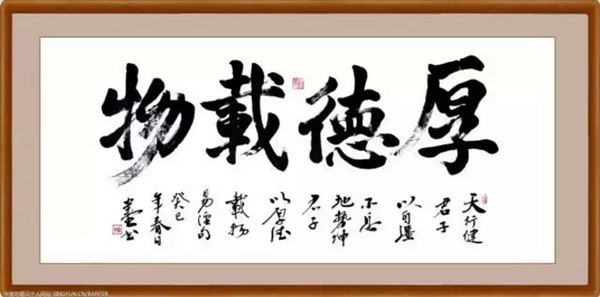 厚德載物
天行健
君子
以自彊
不息
地勢坤
君子
以厚德
載物
易經句
癸巳
年春日
个人网站 XINGYUN.CN/BANTER